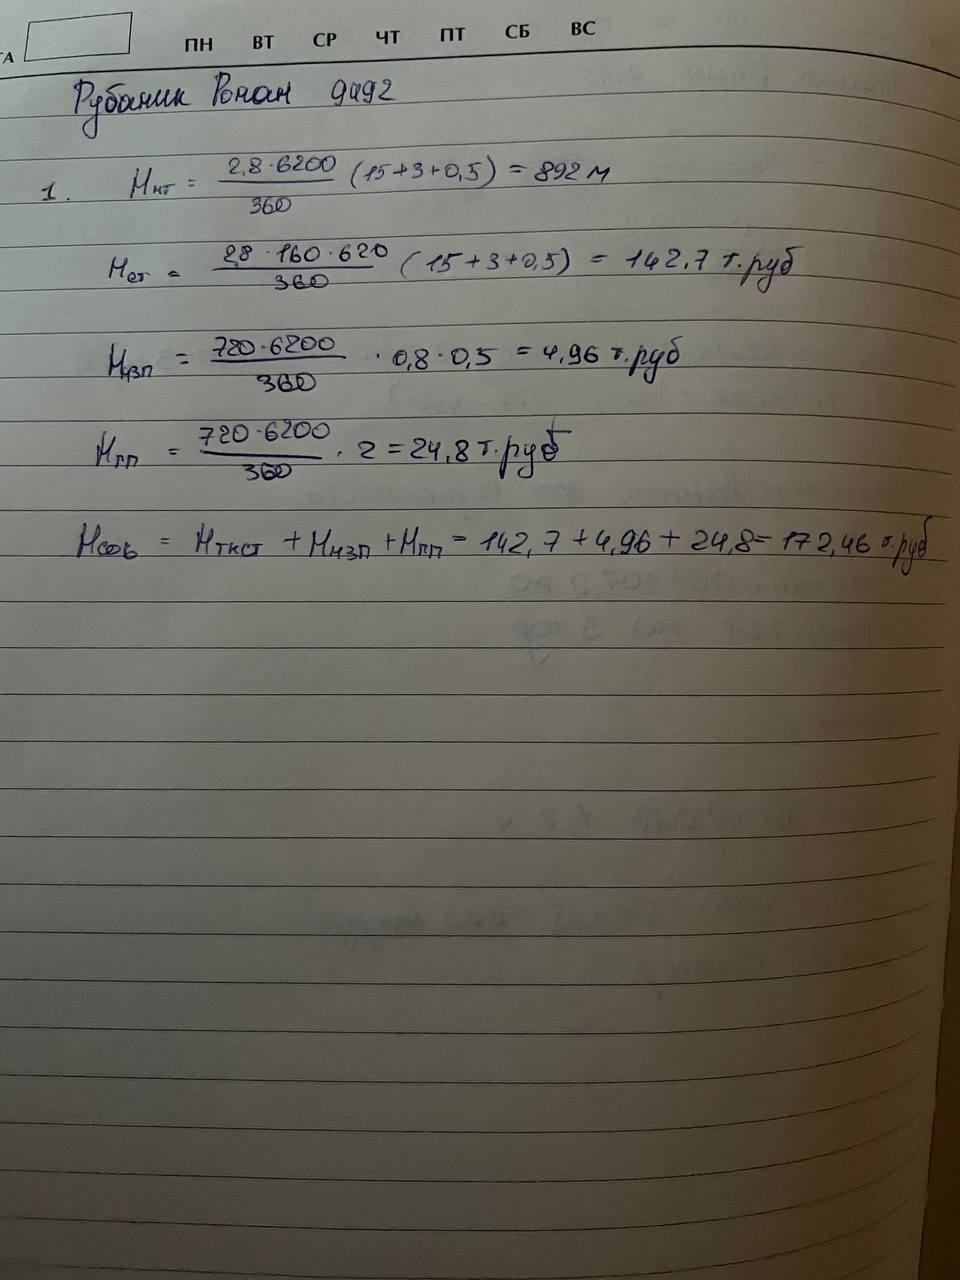 ТА ПН ВТ СР ЧТ ПТ СБ ВС
Рубаник Роман 9492
1. Ннт = 2,8·6200/360 (15+3+0,5) = 892 м
Нст = 2,8·160·620/360 (15+3+0,5) = 142,7 т.руб
Ннзп = 720·6200/360 · 0,8·0,5 = 4,96 т.руб
Нгп = 720·6200/360 · 2 = 24,8 т.руб
Нсов = Нткст + Ннзп + Нгп = 142,7 + 4,96 + 24,8 = 172,46 т.руб